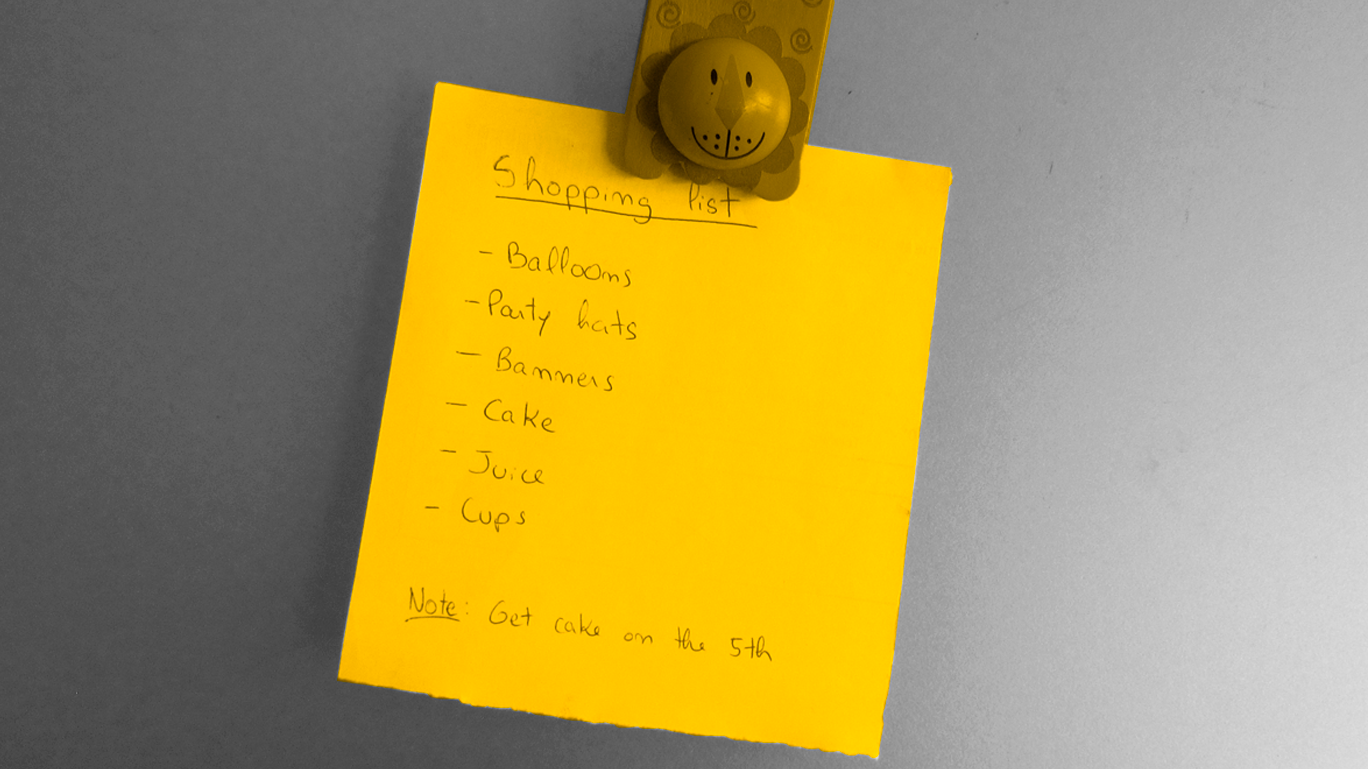 Shopping list
- Balloons
- Party hats
- Banners
- Cake
- Juice
- Cups
Note: Get cake on the 5th